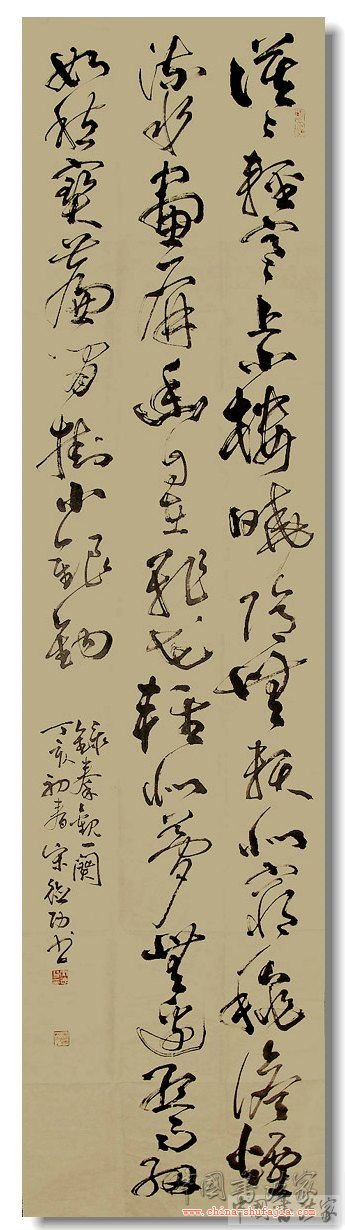 漠々輕寒上小樓曉陰無賴似窮秋澹煙
流水畫屏幽自在飛花輕似夢無邊絲雨細
如愁寶簾閒掛小銀鉤
錄秦觀一闋
丁亥初春宋德功书
中國書法家
www.china-shufajia.com